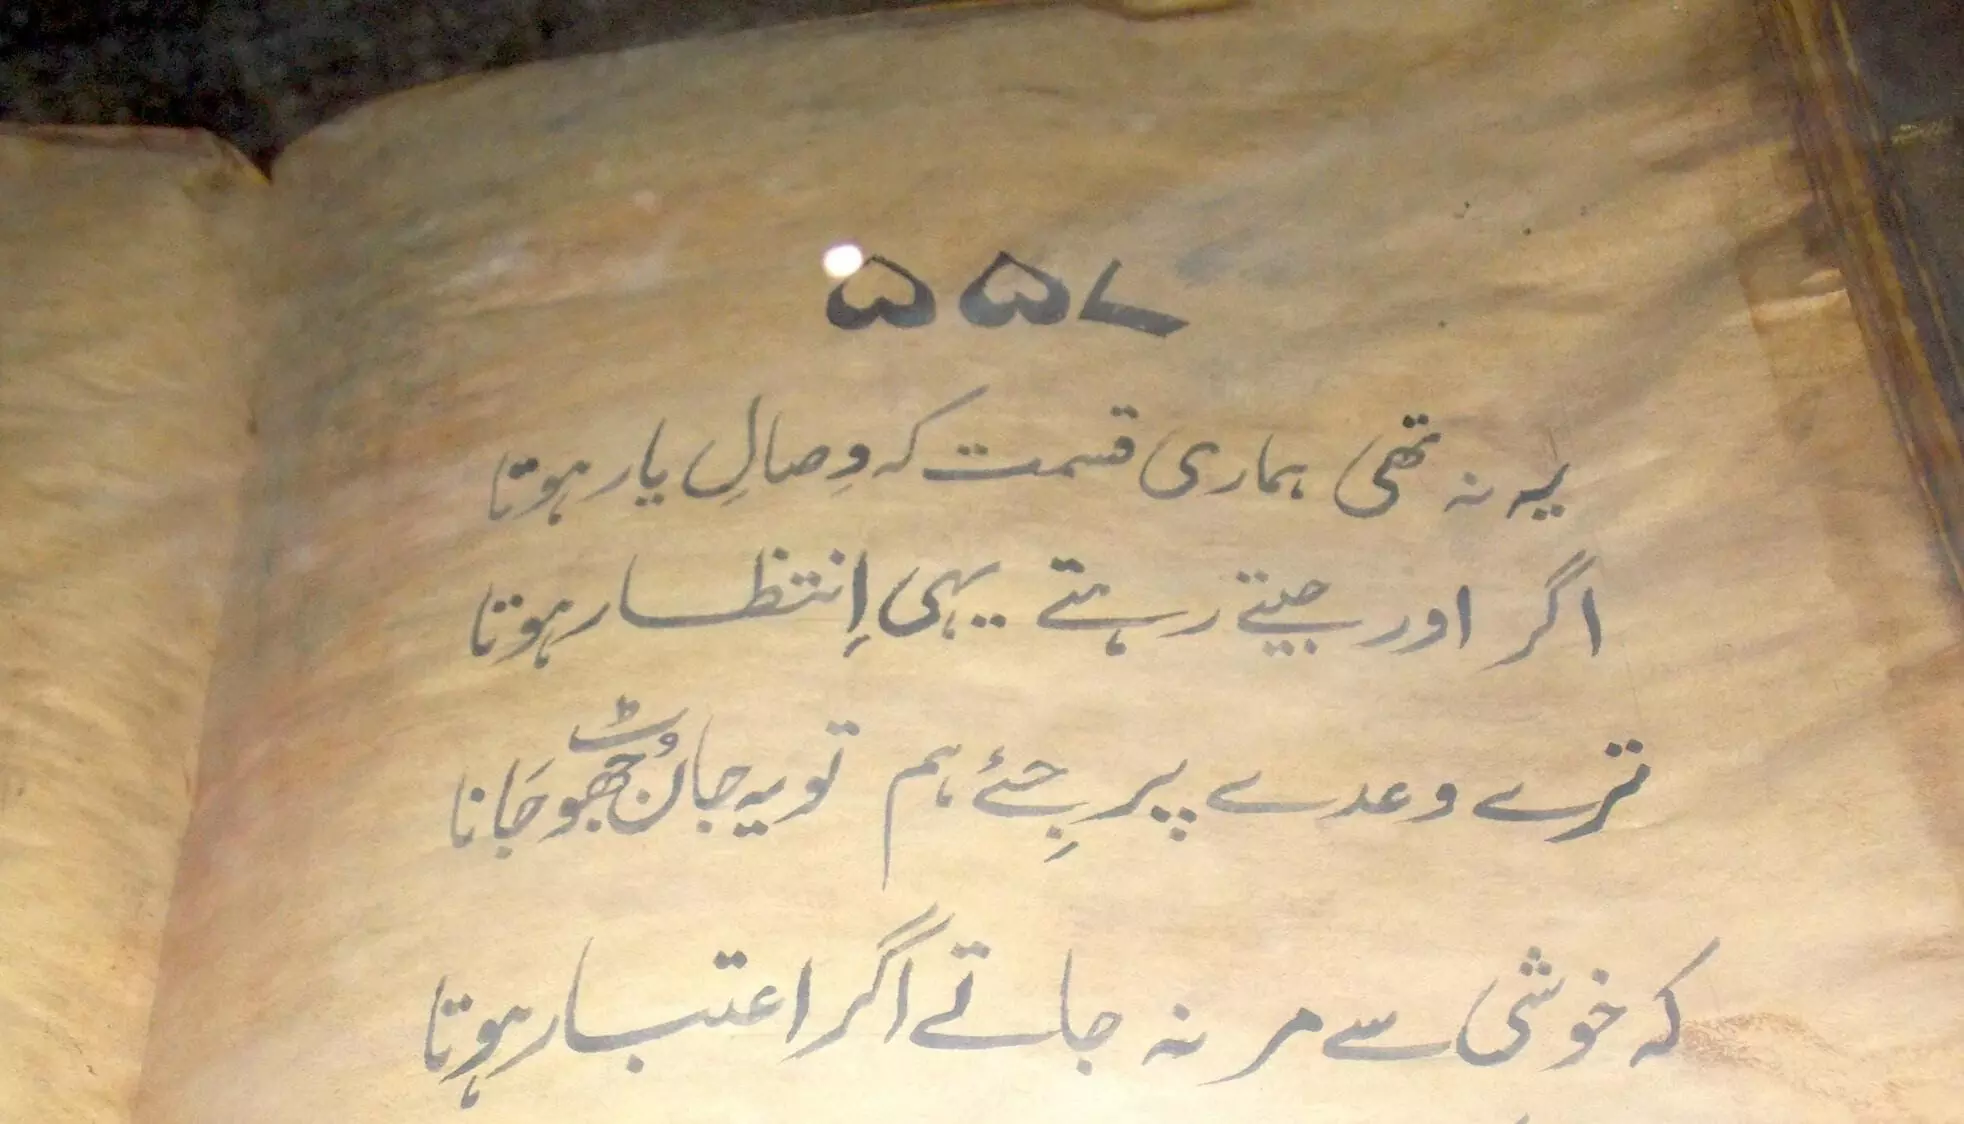 ۵۵۷
یہ نہ تھی ہماری قسمت کہ وِصالِ یار ہوتا
اگر اور جیتے رہتے یہی اِنتظار ہوتا
ترے وعدے پر جِئے ہم تو یہ جان جُھوٹ جَانا
کہ خوشی سے مر نہ جاتے اگر اعتبار ہوتا